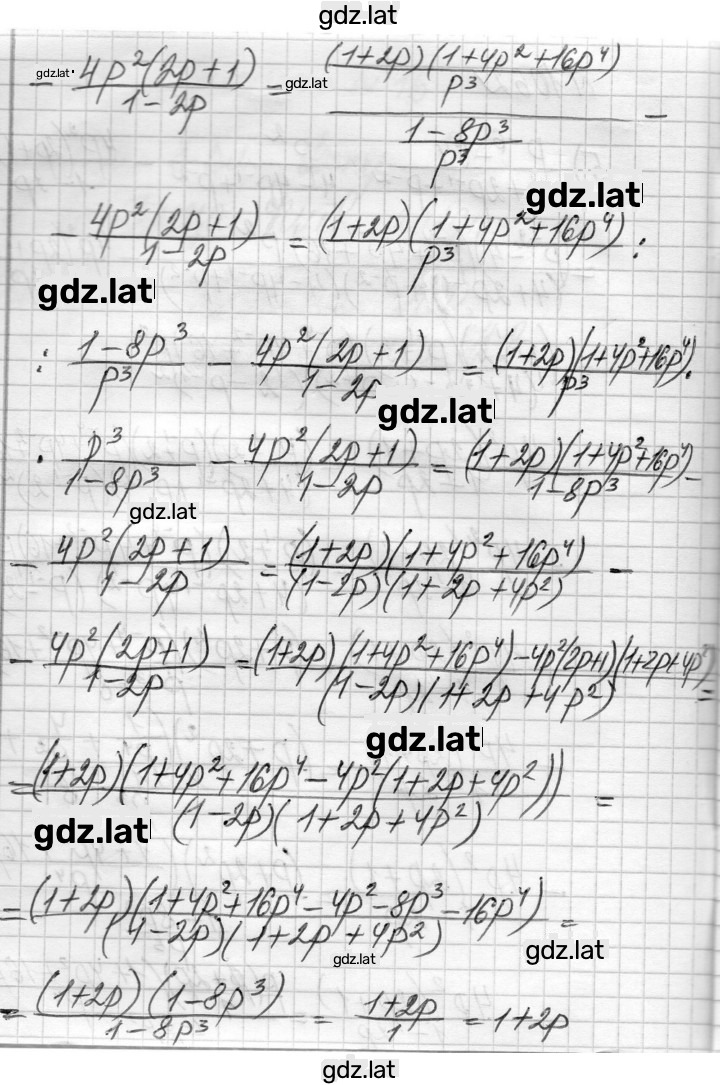 gdz.lat
gdz.lat
- 4p²(2p+1)/(1-2p) = ((1+2p)(1+4p²+16p⁴)/p³)/((1-8p³)/p³) -
gdz.lat
gdz.lat
- 4p²(2p+1)/(1-2p) = (1+2p)(1+4p²+16p⁴)/p³ :
gdz.lat
: (1-8p³)/p³ - 4p²(2p+1)/(1-2p) = (1+2p)(1+4p²+16p⁴)/p³ ·
gdz.lat
· p³/(1-8p³) - 4p²(2p+1)/(1-2p) = (1+2p)(1+4p²+16p⁴)/(1-8p³) -
gdz.lat
- 4p²(2p+1)/(1-2p) = (1+2p)(1+4p²+16p⁴)/((1-2p)(1+2p+4p²)) -
- 4p²(2p+1)/(1-2p) = ((1+2p)(1+4p²+16p⁴)-4p²(2p+1)(1+2p+4p²))/((1-2p)(1+2p+4p²)) =
gdz.lat
= (1+2p)(1+4p²+16p⁴-4p²(1+2p+4p²))/((1-2p)(1+2p+4p²)) =
gdz.lat
= (1+2p)(1+4p²+16p⁴-4p²-8p³-16p⁴)/((1-2p)(1+2p+4p²)) =
gdz.lat
gdz.lat
= (1+2p)(1-8p³)/(1-8p³) = (1+2p)/1 = 1+2p
gdz.lat